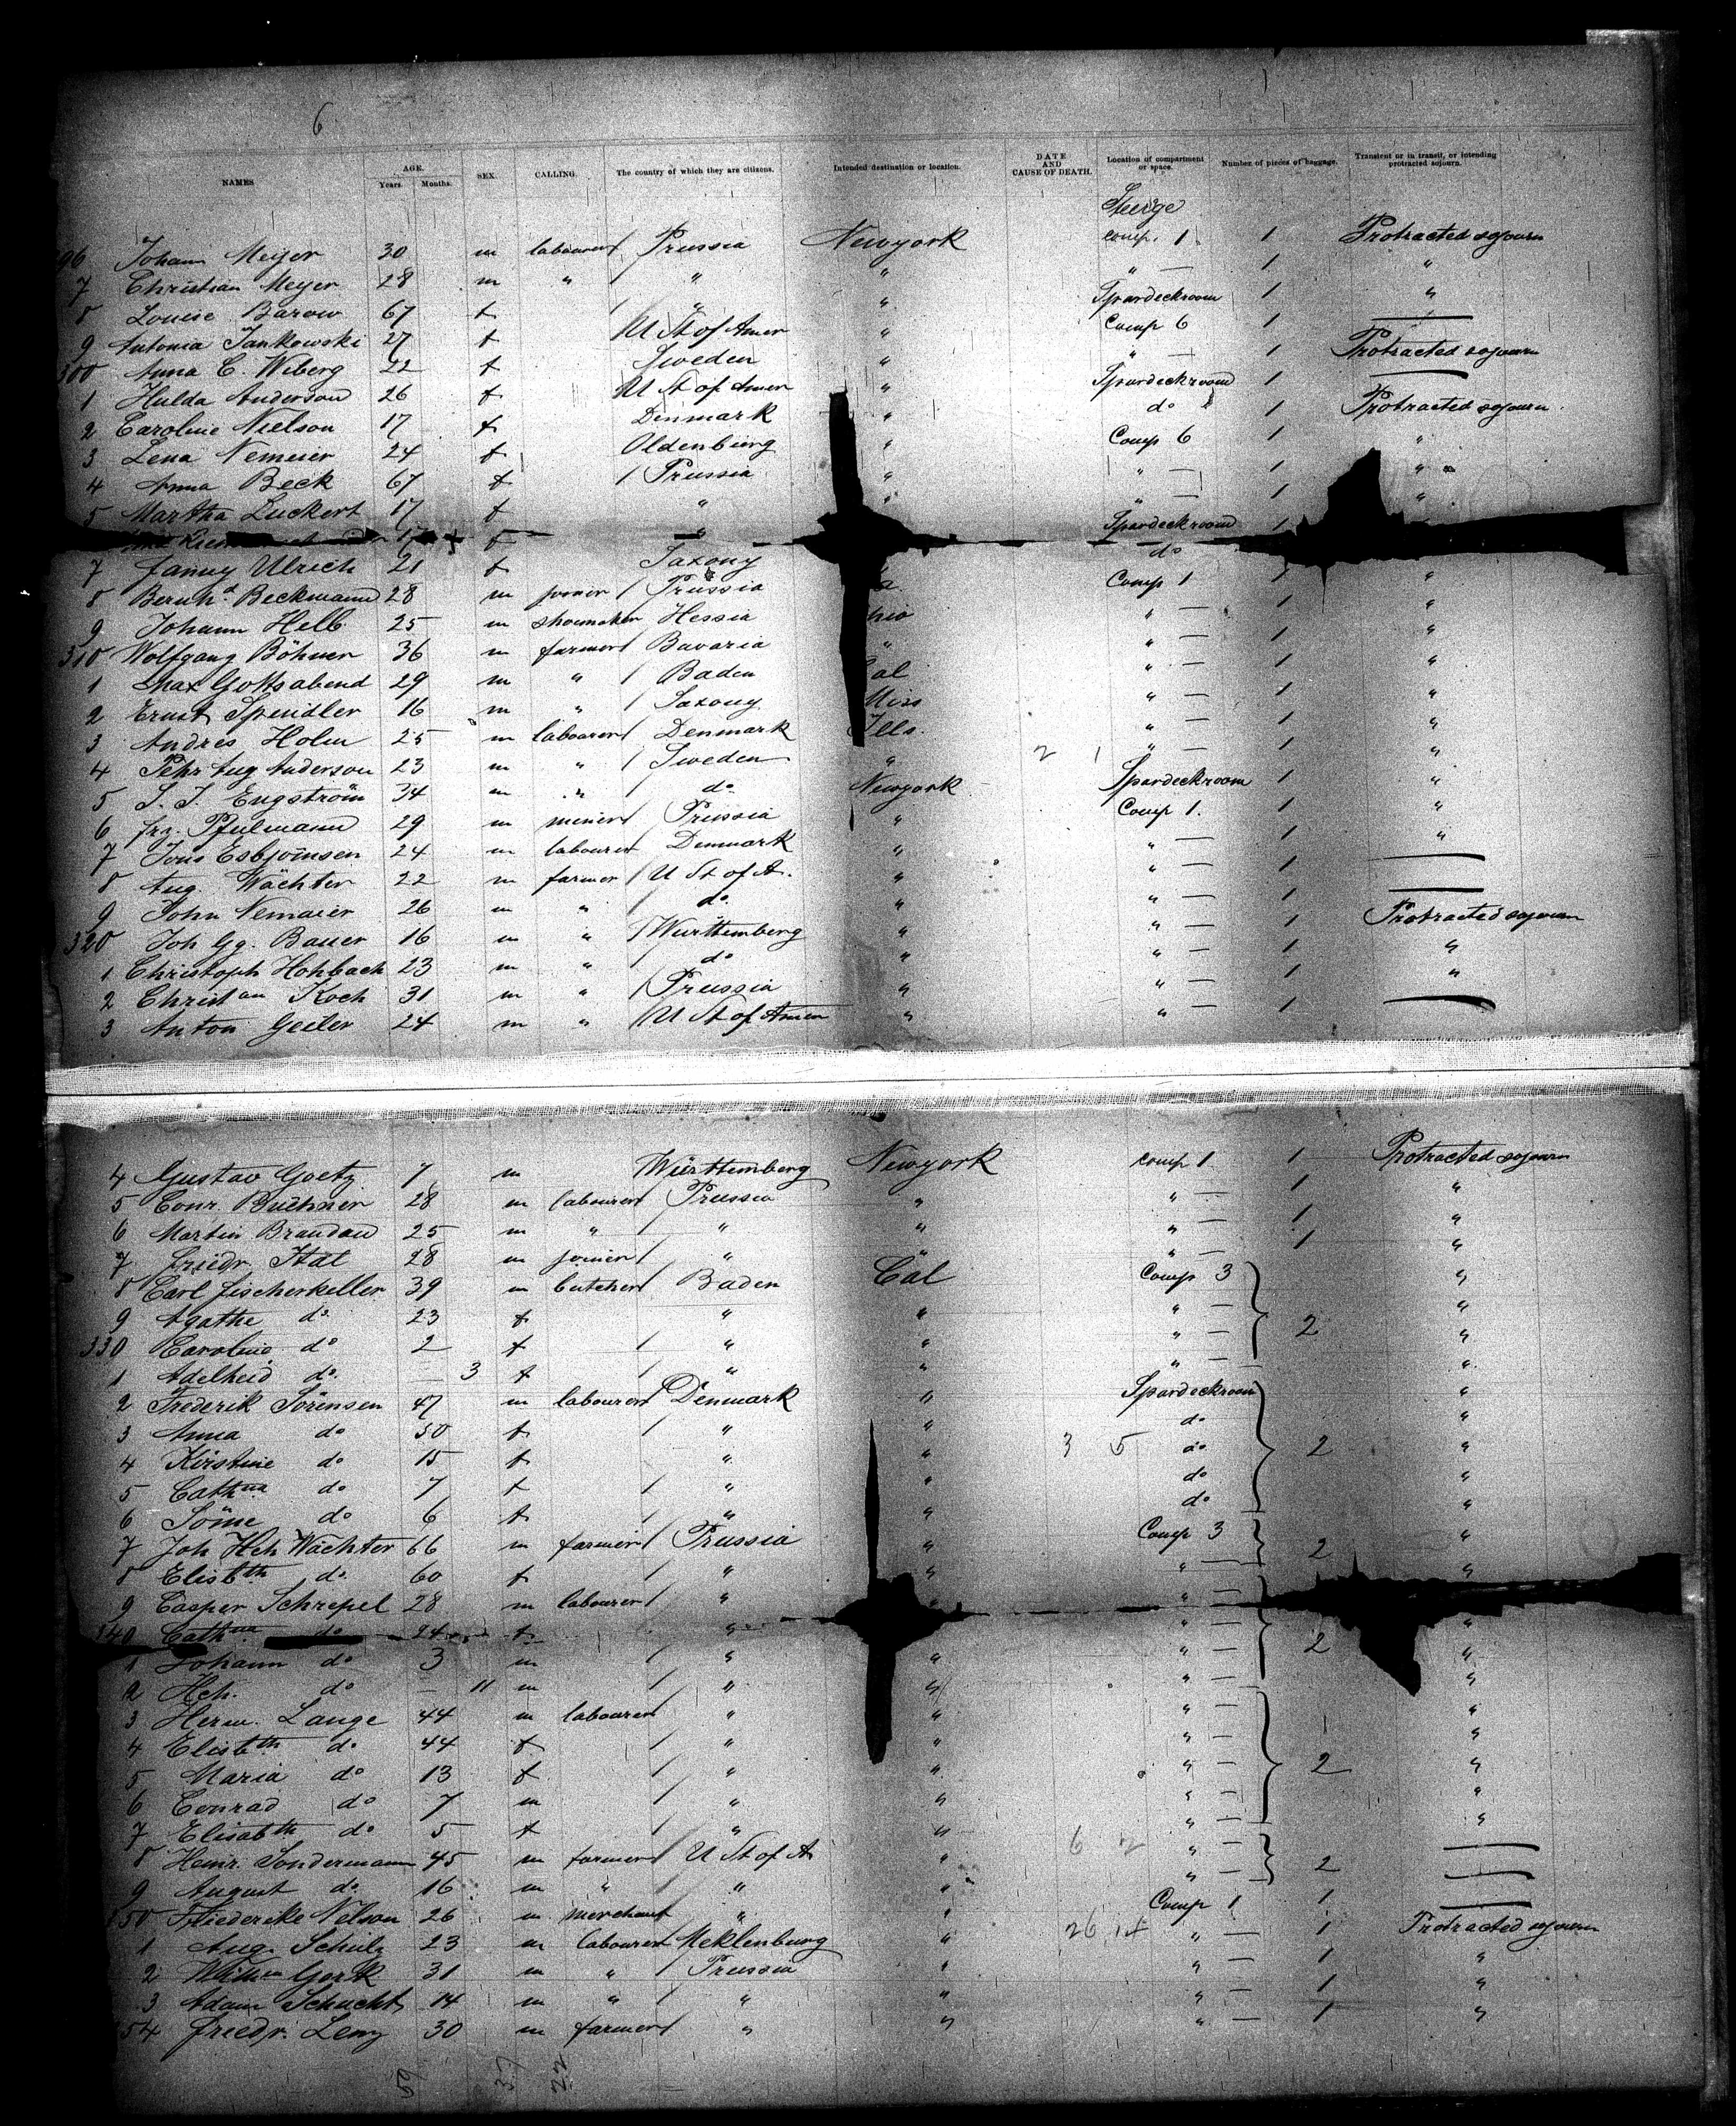 6
NAMES AGE. Years. Months. SEX. CALLING. The country of which they are citizens. Intended destination or location. DATE AND CAUSE OF DEATH. Location of compartment or space. Number of pieces of baggage. Transient or in transit, or intending protracted sojourn.
Steerge
96 Johann Meyer 30 m labourer Prussia Newyork comp. 1. 1 Protracted sojourn
7 Christian Meyer 28 m " " " " — 1 "
8 Louise Barow 67 f " " Spardeckroom 1 "
9 Antonia Jankowski 27 f U St of Amer " Comp 6 1 —
300 Anna C. Wiberg 22 f Sweden " " — 1 Protracted sojourn
1 Hulda Anderson 26 f U St of Amer " Spardeckroom 1 —
2 Caroline Nielson 17 f Denmark " do 1 Protracted sojourn.
3 Lena Nemeier 24 f Oldenburg " Comp 6 1 "
4 Anna Beck 67 f Prussia " " — 1 "
5 Martha Luckert 17 f " " " — 1 "
17 f " Spardeckroom 1
7 Fanny Ulrich 21 f Saxony do
8 Bernhd Beckmann 28 m joiner Prussia Comp 1 1 "
9 Johann Helb 25 m shoemaker Hessia hio " — 1 "
310 Wolfgang Böhner 36 m farmer Bavaria " " — 1 "
1 Max Gottsabend 29 m " Baden al " — 1 "
2 Ernst Spindler 16 m " Saxony Miss " — 1 "
3 Andres Holm 25 m labourer Denmark Ills. " — 1 "
4 Pehr Aug Anderson 23 m " Sweden " 2 1 " — 1 "
5 S. J. Engström 34 m " do Newyork Spardeckroom 1 "
6 Frz. Pfulmann 29 m miner Prussia " Comp 1. 1 "
7 Jons Esbjörnsen 24 m labourer Denmark " " — 1 "
8 Aug. Wächter 22 m farmer U St of A. " " — 1 —
9 John Nemaier 26 m " do " " — 1 —
320 Joh Gg. Bauer 16 m " Württemberg " " — 1 Protracted sojourn
1 Christoph Hohbach 23 m " do " " — 1 "
2 Christian Koch 31 m " Prussia " " — 1 "
3 Anton Geiler 24 m " U St of Amer " " 1 —
4 Gustav Goetz 7 m Württemberg Newyork Comp 1 1 Protracted sojourn
5 Conr. Buchner 28 m labourer Prussia " " — 1 "
6 Martin Brandau 25 m " " " " — 1 "
7 Friedr. Ital 28 m joiner " " " — 1 "
8 Carl Fischerkeller 39 m butcher Baden Cal Comp 3 "
9 Agathe do 23 f " " " — 2 "
330 Caroline do 2 f " " " — "
1 Adelheid do — 3 f " " " — "
2 Frederik Sörensen 47 m labourer Denmark " Spardeckroom "
3 Anna do 50 f " " do "
4 Kirstine do 15 f " " 3 5 do 2 "
5 Cathna do 7 f " " do "
6 Söine do 6 f " " do "
7 Joh Hch Wächter 66 m farmer Prussia " Comp 3 2 "
8 Elisbth do 60 f " " " — "
9 Casper Schrepel 28 m labourer " " " —
340 Cathna do 24 f " " — "
1 Johann do 3 m " " " — 2 "
2 Hch. do — 11 m " " " — "
3 Herm. Lange 44 m labourer " " " — "
4 Elisbth do 44 f " " " — "
5 Maria do 13 f " " " — 2 "
6 Conrad do 7 m " " " — "
7 Elisabth do 5 f " " " — "
8 Heinr. Sondermann 45 m farmer U St of A " 6 2 " — 2 —
9 August do 16 m " " " " — —
350 Friedericke Nelson 26 m merchant " " Comp 1 1 —
1 Aug. Schulz 23 m labourer Meklenburg " 26 14 " — 1 Protracted sojourn
2 Willm Gerk 31 m " Prussia " " 1 "
3 Adam Schucht 14 m " " " " — 1 "
354 Friedr. Lenz 30 m farmer " " " — 1 "
59 37 22